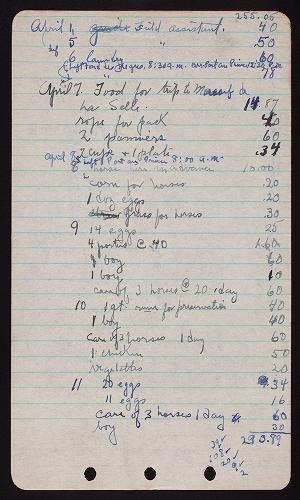 255.05
April 4 Field assistant. 40
" 5 " .50
" 6 Laundry 60
" 78
April 7. Food for trip to Massif de
La Selle. 14.87
rope for pack 40
2 panniers 60
2 cups + 1 plate .34
april 8 left Port au Prince 8:00 a.m.
8 horse hire in advance 10.00
corn for horses .20
1 doz eggs .20
grass for horses .30
9 14 eggs 25
4 @ 40 1.60
1 boy 60
1 boy 10
care of 3 horses @ 20 1 day 60
10 1 qt. rum for preservation 40
1 boy 40
Care of 3 horses 1 day 60
1 chicken 50
vegetables 20
11 20 eggs .34
11 eggs 16
care of 3 horses 1 day 60
boy 30
290.89